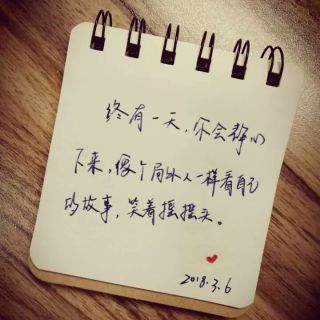 终有一天,你会静心
下来,像个局外人一样看自己
的故事,笑着摇摇头。
2018.3.6